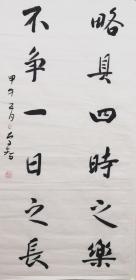 略具四時之樂
不争一日之長
甲午五月